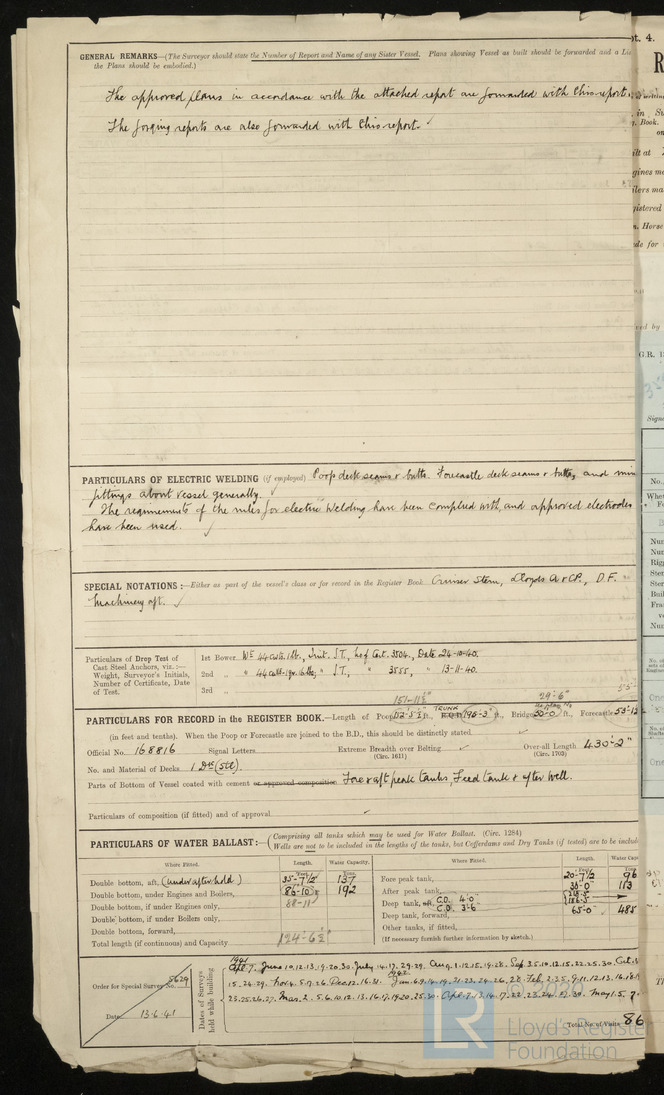 GENERAL REMARKS—(The Surveyor should state the Number of Report and Name of any Sister Vessel. Plans showing Vessel as built should be forwarded and a
the Plans should be embodied.)
The approved plans in accordance with the attached report are forwarded with this report.
The forging reports are also forwarded with this report.
PARTICULARS OF ELECTRIC WELDING (if employed) Poop deck seams & butts. Forecastle deck seams & butts, and
fittings about vessel generally.
The requirements of the rules for electric welding have been complied with, and approved electrodes
have been used.
SPECIAL NOTATIONS:—Either as part of the vessel's class or for record in the Register Book Cruiser Stern, Lloyds A & CP., D.F.
Machinery aft.
Particulars of Drop Test of
Cast Steel Anchors, viz.:—
Weight, Surveyor's Initials,
Number of Certificate, Date
of Test.
1st Bower Wt. 44 cwts. 1 lb., Init. J.T., No of Cert. 3504., Date 24-10-40.
2nd „ „ 44 cwt. 1 qr. 16 lbs; „ J.T., „ 3555, „ 13-11-40.
3rd „
151-11½" 29'-6"
PARTICULARS FOR RECORD in the REGISTER BOOK.—Length of Poop ft., TRUNK 196-3" ft., Bridge 30-0" ft., Forecastle
(in feet and tenths). When the Poop or Forecastle are joined to the B.D., this should be distinctly stated.
Official No. 168816 Signal Letters Extreme Breadth over Belting (Circ. 1611) Over-all Length (Circ. 1703) 430'-2"
No. and Material of Decks 1 Dk (Stl).
Parts of Bottom of Vessel coated with cement or approval composition Fore & aft peak tanks, Feed tank & after well.
Particulars of composition (if fitted) and of approval
PARTICULARS OF WATER BALLAST:—(Comprising all tanks which may be used for Water Ballast. (Circ. 1284)
Wells are not to be included in the lengths of the tanks, but Cofferdams and Dry Tanks (if tested) are to be
Where Fitted. Length. Water Capacity. Where Fitted. Length. Water
Feet. Tons. Feet. Tons.
Double bottom, aft, (under after hold) 35-7½ 137
Double bottom, under Engines and Boilers, 86-10 192
Double bottom, if under Engines only, 88-11
Double bottom, if under Boilers only,
Double bottom, forward,
Total length (if continuous) and Capacity 124-6½
Fore peak tank, 20-7½ 96
After peak tank, 38-0 113
Deep tank, aft, C.D. 4'0"
C.D. 3-6
Deep tank, forward, 65-0 485
Other tanks, if fitted,
(If necessary furnish further information by sketch.)
Order for Special Survey No. 5629
Date 13-6-41
Dates of Surveys held while building
1941
Apl. 7. June 10.12.13.19.20.30. July 14.17.29.29. Aug. 1.12.15.19.28. Sep. 3.5.10.12.15.22.25.30. Oct.
15.24.29. Nov. 4.5.17.26. Dec. 12.16.31. 1942 Jan. 6.9.14.19.21.23.24.26.28. Feb. 2.3.5.9.11.12.13.16.18.
23.25.26.27. Mar. 2.5.6.10.12.13.16.17.19.20.25.30. Apl. 7.13.14.17.22.23.24. 30. May 1.5.
Total No. of Visits 86
© 2020
LR
Lloyd's Register
Foundation